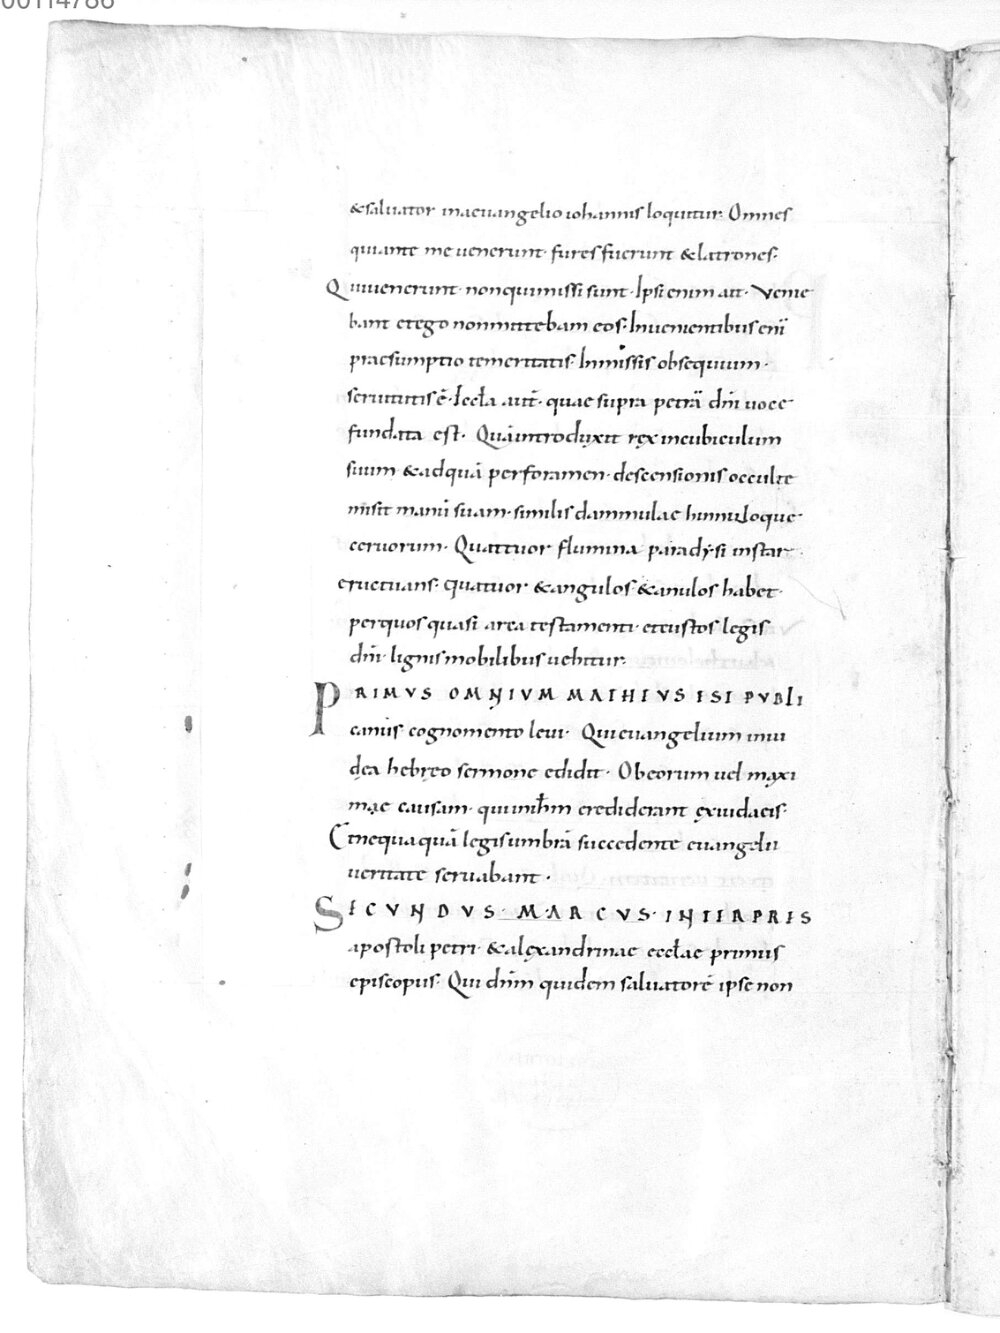 00114786
&saluator inaeuangelio iohannis loquitur. Omnes
qui ante me uenerunt· fures fuerunt & latrones·
Qui uenerunt· non qui missi sunt· Ipsi enim ait· Venie
bant et ego non mittebam eos· In uenientibus enī
praesumptio temeritatis· In missis obsequium·
seruitutis ē· Ieccła aūt· quae supra petrā dnī uoce
fundata est· Quā introduxit rex in cubiculum
suum & ad quā per foramen· descensionis occulte
misit manū suam· similis dammulae hinnuloque·
ceruorum· Quattuor flumina paradysi instar·
eructuans· quatuor & angulos & anulos habet·
per quos quasi arca testamenti· et custos legis
dnī· lignis mobilibus uehitur·
PRIMUS OMNIUM MATHEUS EST PUBLI
canus cognomento leui· Qui euangelium in iu
dea hebreo sermone edidit· Ob eorum uel maxi
mae causam· qui in ihm crediderant ex iudaeis·
Et nequaquā legis umbrā succedente euangelii
ueritate seruabant·
SECUNDUS· MARCUS· INTERPRES
apostoli petri· & alexandrinae eccłae primus
episcopus· Qui dnm quidem saluatorē ipse non